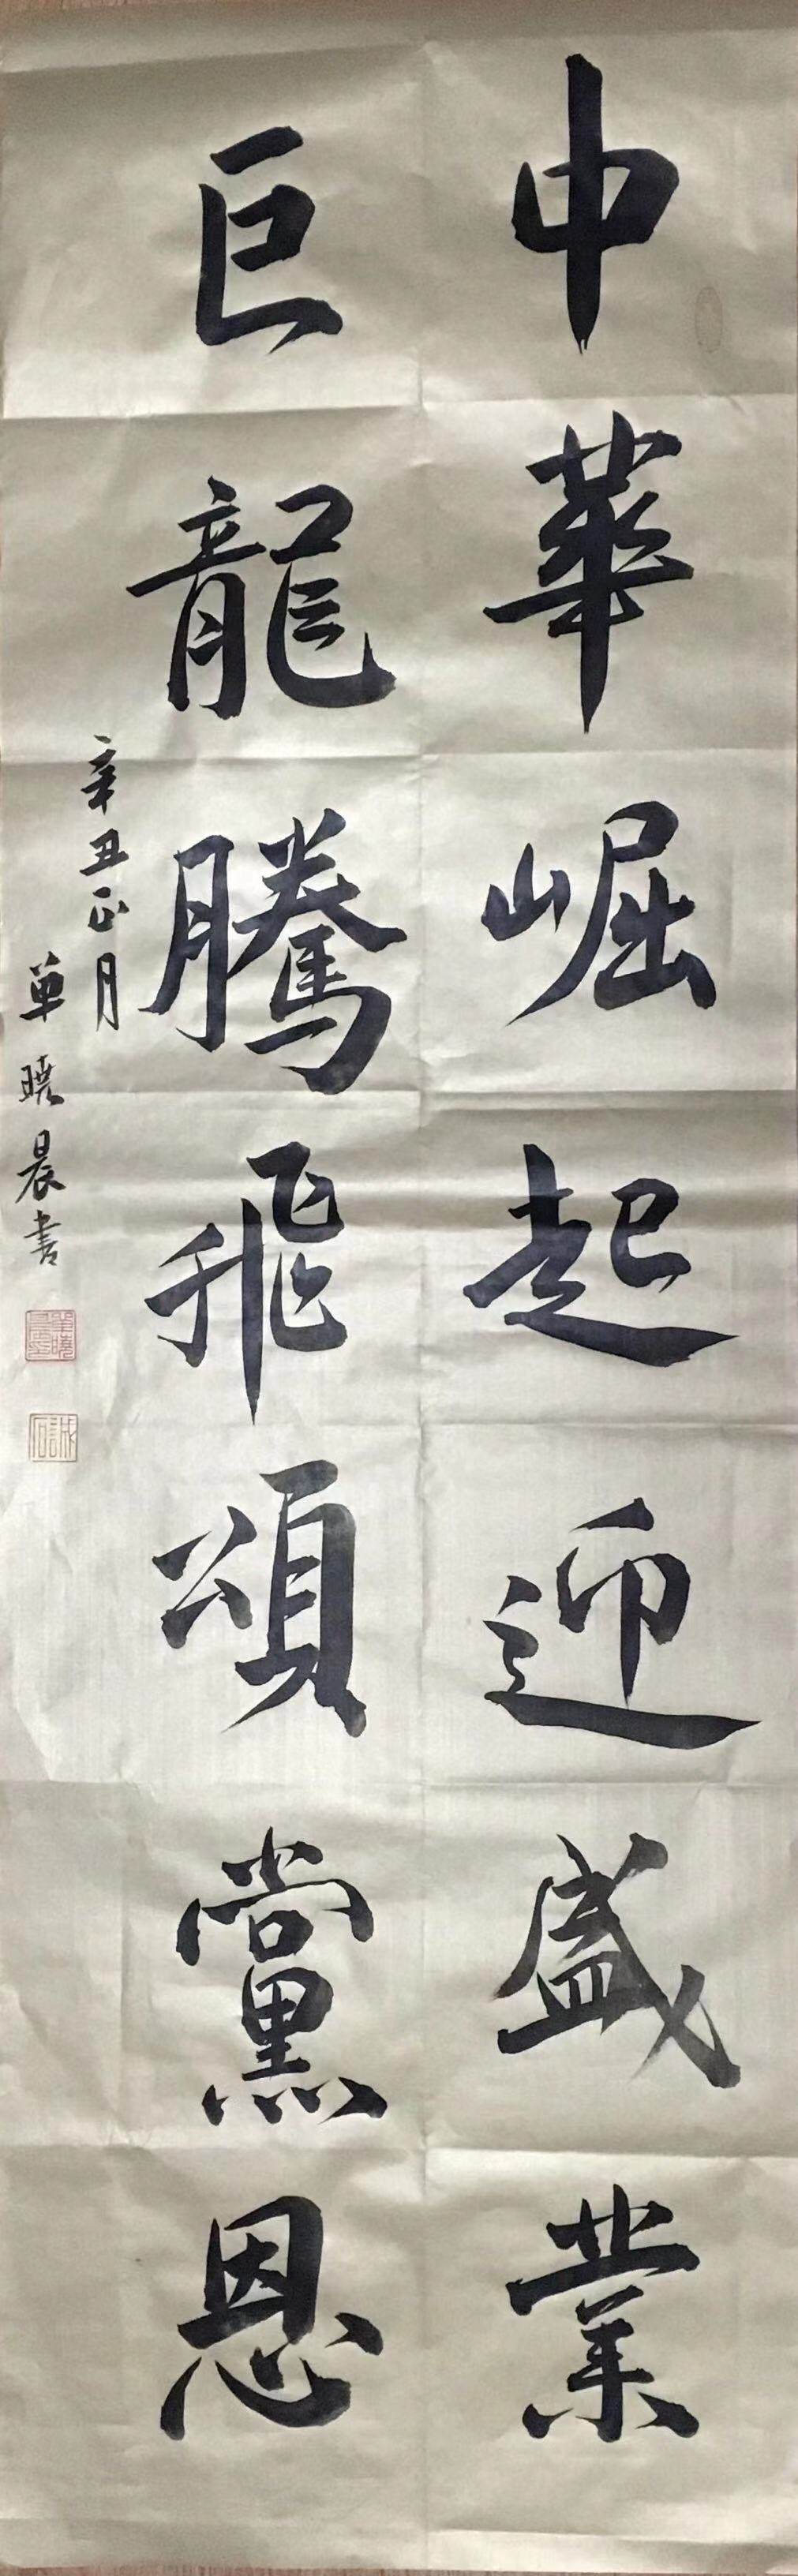 中華崛起迎盛業
巨龍騰飛頌黨恩
辛丑正月
單曉晨書